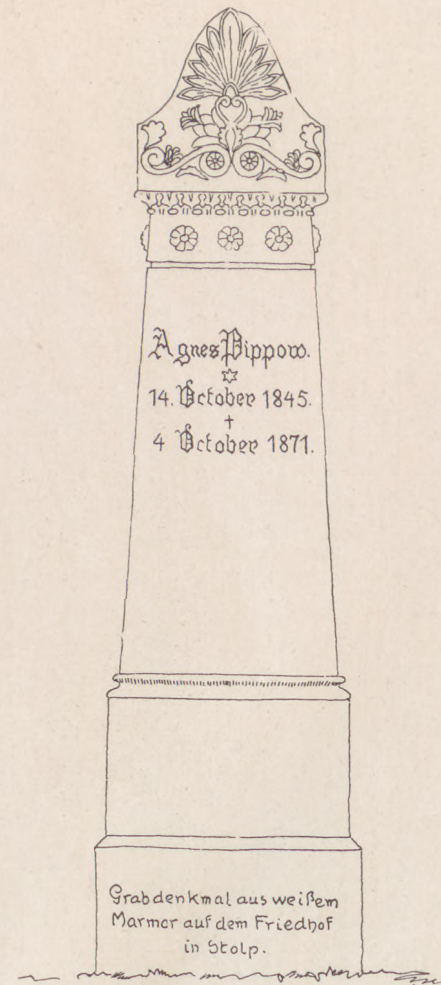 Agnes Pippow.
✡
14. October 1845.
†
4 October 1871.
Grabdenkmal aus weißem
Marmor auf dem Friedhof
in Stolp.